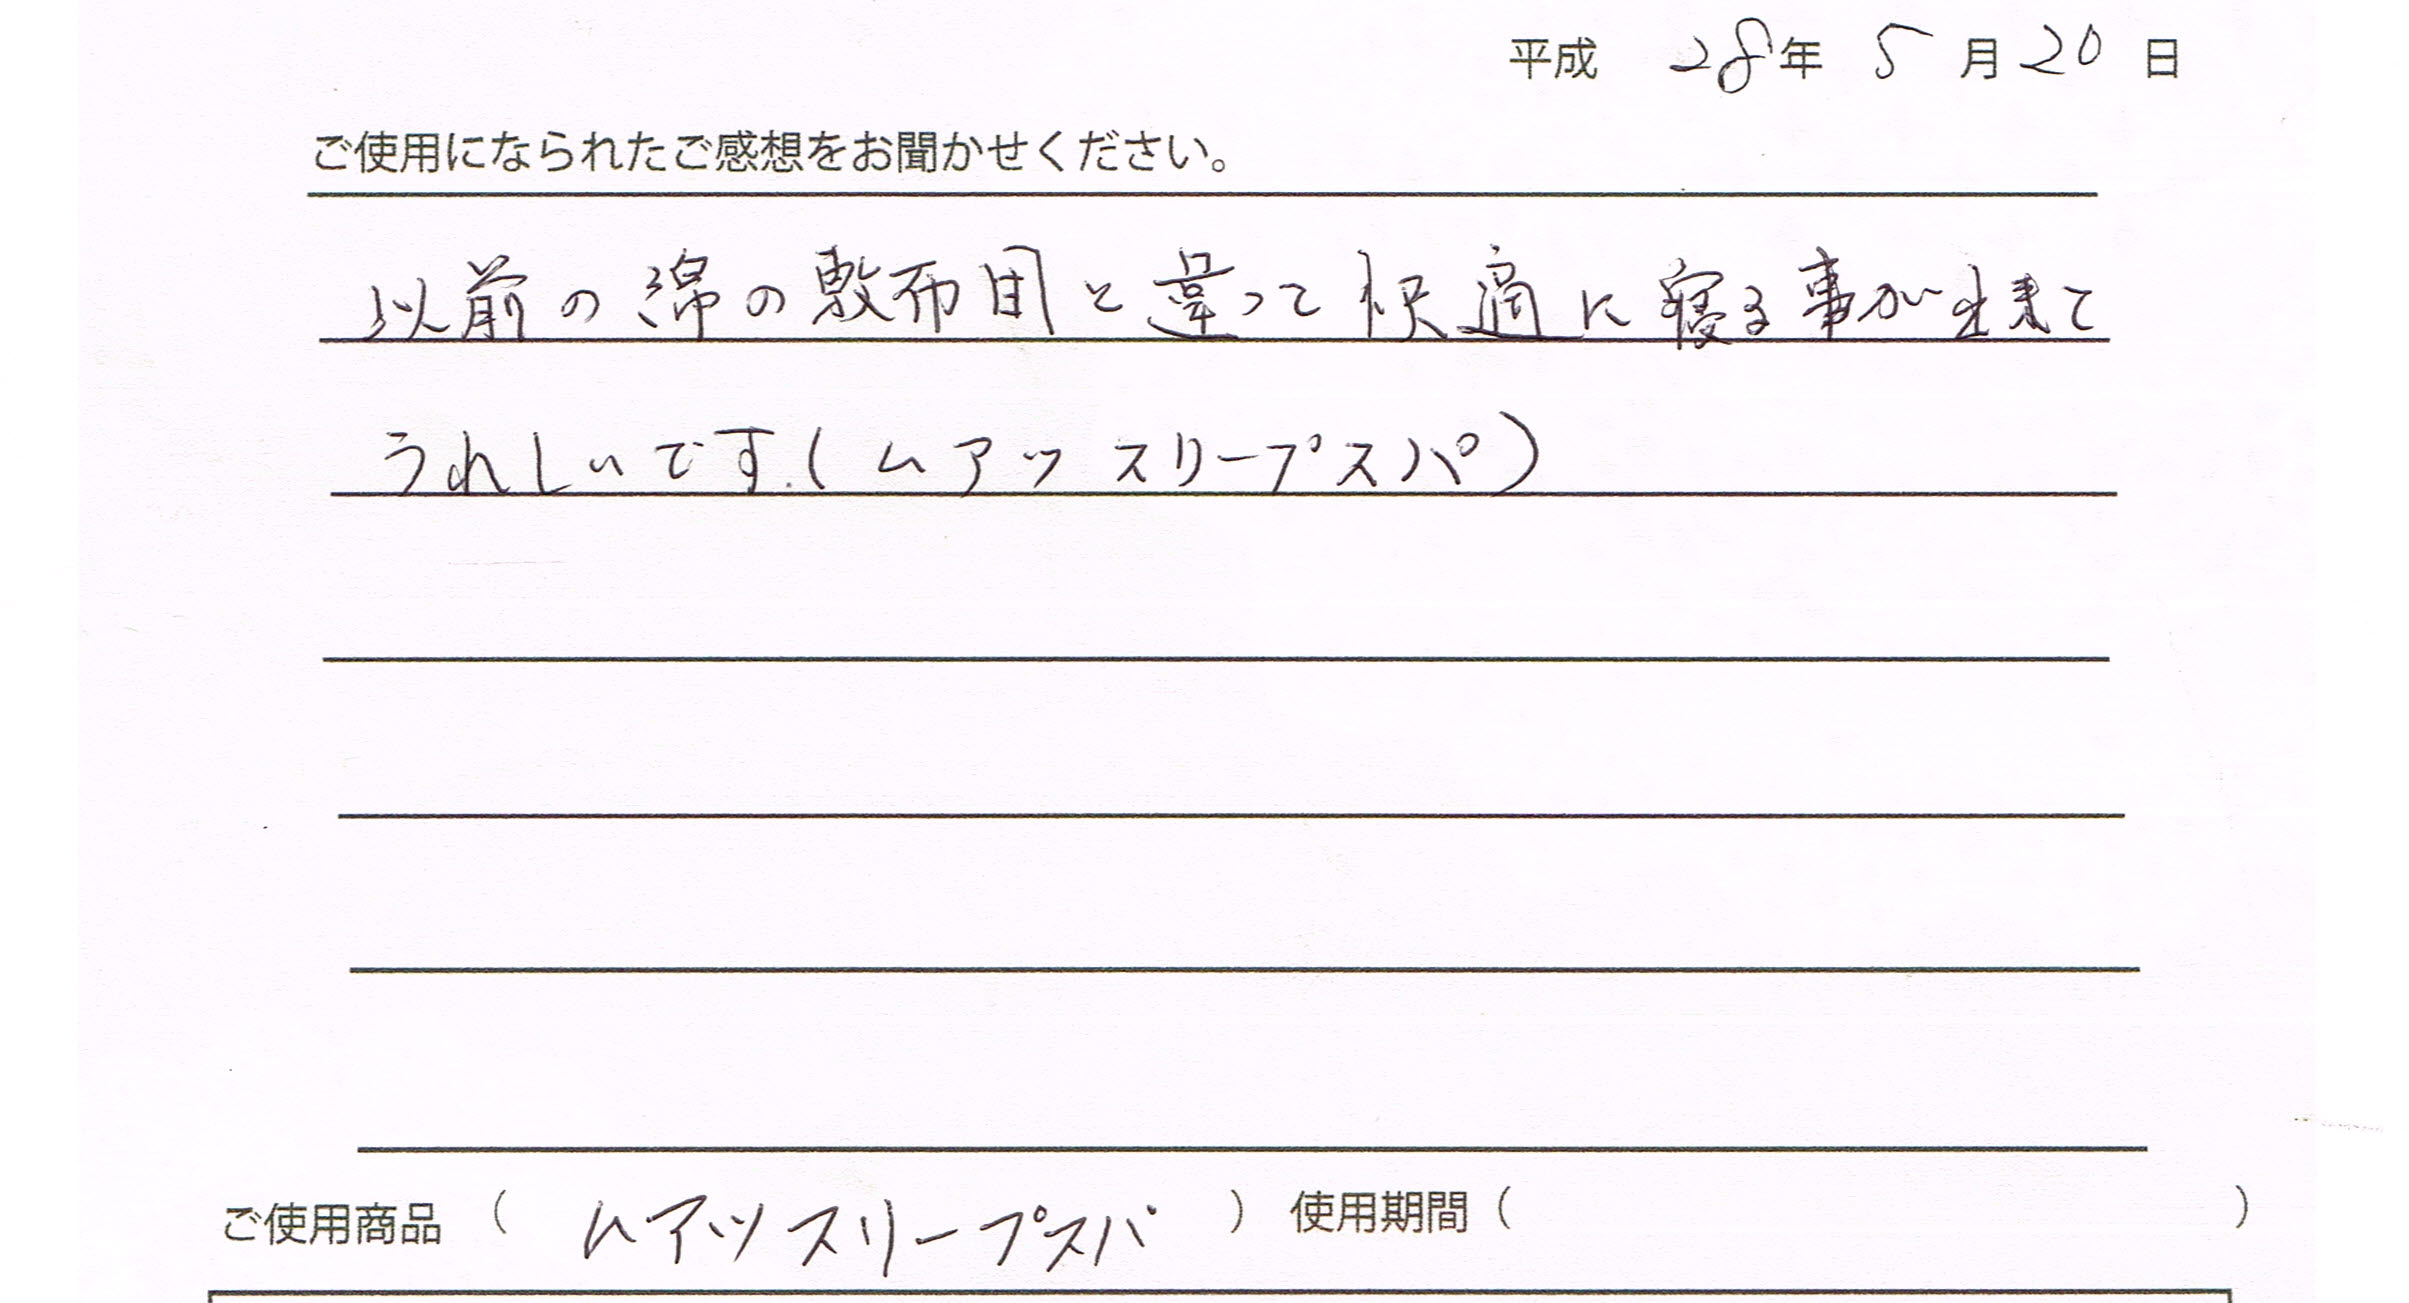 平成 28年 5月20日
ご使用になられたご感想をお聞かせください。
以前の綿の敷布団と違って快適に寝る事が出来て
うれしいです.(ムアツ スリープスパ)
ご使用商品( ムアツスリープスパ ) 使用期間( )